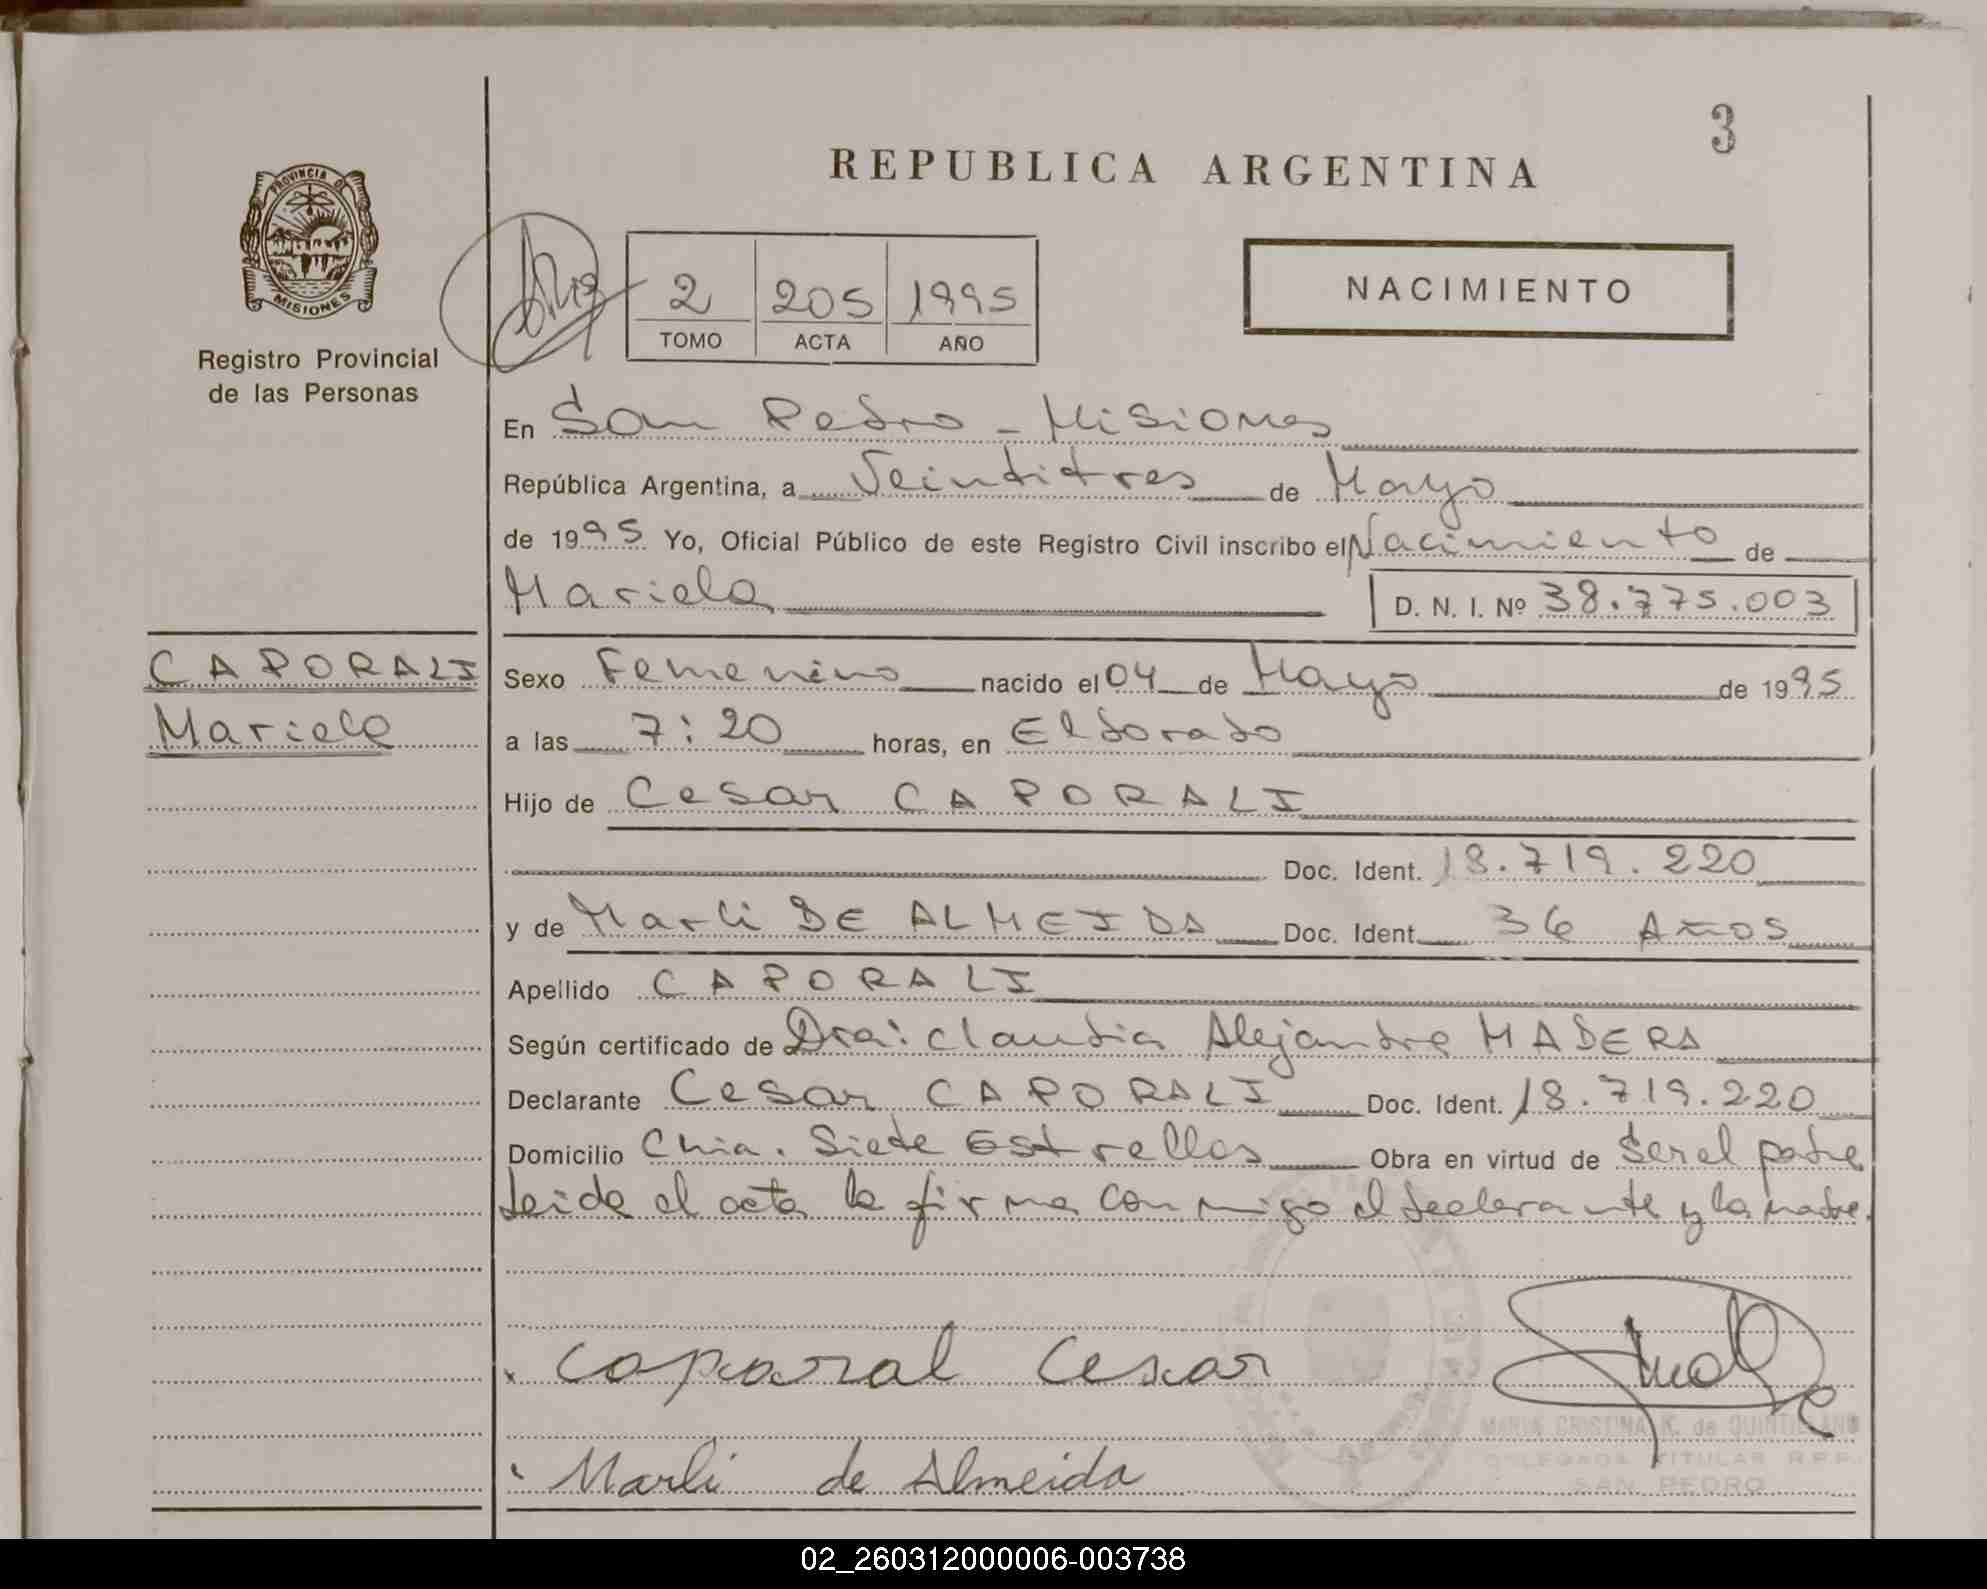 3
REPUBLICA ARGENTINA
PROVINCIA DE
MISIONES
Registro Provincial
de las Personas
2 205 1995
TOMO ACTA AÑO
NACIMIENTO
En San Pedro - Misiones
República Argentina, a Veintitres de Mayo
de 1995 Yo, Oficial Público de este Registro Civil inscribo el Nacimiento de
Mariela D. N. I. Nº 38.775.003
CAPORALI
Mariela
Sexo Femenino nacido el 04 de Mayo de 1995
a las 7:20 horas, en Eldorado
Hijo de Cesar CAPORALI
Doc. Ident. 18.719.220
y de Marli DE ALMEIDA Doc. Ident. 36 Años
Apellido CAPORALI
Según certificado de Dra: Claudia Alejandra MADERA
Declarante Cesar CAPORALI Doc. Ident. 18.719.220
Domicilio Chia. Siete Estrellas Obra en virtud de Ser el padre
Leida el acta la firma conmigo el declarante y la madre.
Caporal Cesar
MARIA CRISTINA K. de QUINTILLANO
DELEGADA TITULAR R.P.P.
SAN PEDRO
Marli de Almeida
02_260312000006-003738